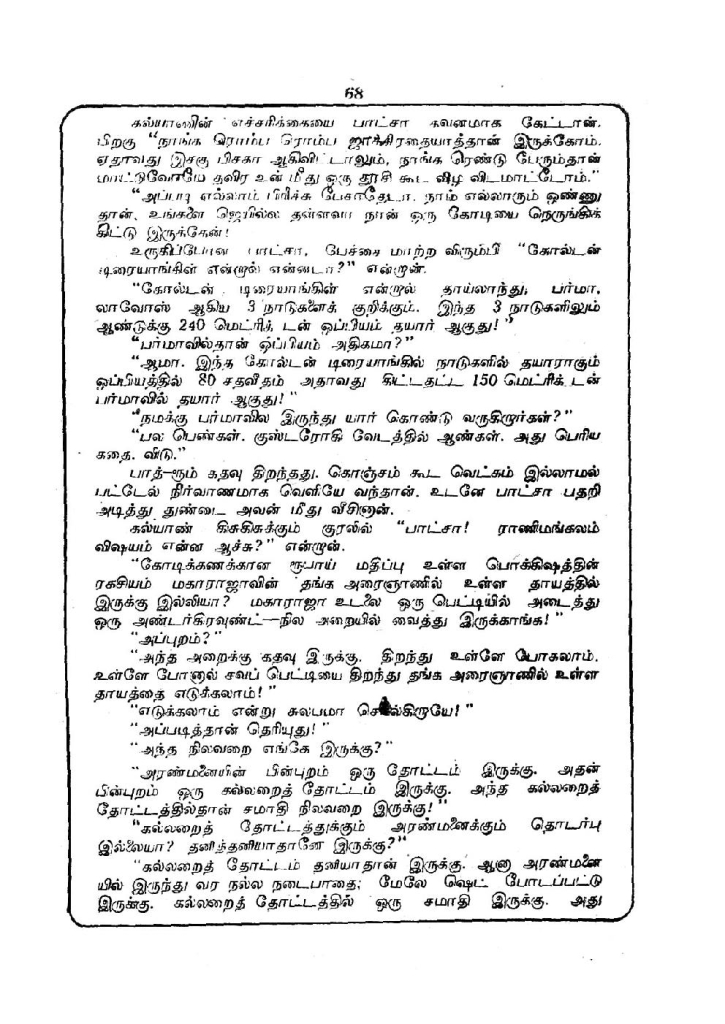 68
கல்யாணின் எச்சரிக்கையை பாட்சா கவனமாக கேட்டான்.
பிறகு "நாங்க ரொம்ப ரொம்ப ஜாக்கிரதையாத்தான் இருக்கோம்.
ஏதாவது இசகு பிசகா ஆகிவிட்டாலும், நாங்க ரெண்டு பேரும்தான்
மாட்டுவோமே தவிர உன் மீது ஒரு தூசி கூட விழ விடமாட்டோம்."
"அப்படி எல்லாம் பிரிச்சு பேசாதேடா. நாம் எல்லாரும் ஒண்ணு
தான். உங்களை ஜெயில்ல தள்ளவா நான் ஒரு கோடியை நெருங்கிக்
கிட்டு இருக்கேன்!
உருகிப்போன பாட்சா, பேச்சை மாற்ற விரும்பி "கோல்டன்
டிரையாங்கிள் என்றால் என்னடா?" என்றான்.
"கோல்டன் டிரையாங்கிள் என்றால் தாய்லாந்து; பர்மா,
லாவோஸ் ஆகிய 3 நாடுகளைக் குறிக்கும். இந்த 3 நாடுகளிலும்
ஆண்டுக்கு 240 மெட்ரிக் டன் ஒப்பியம் தயார் ஆகுது!"
"பர்மாவில்தான் ஒப்பியம் அதிகமா?"
"ஆமா. இந்த கோல்டன் டிரையாங்கில் நாடுகளில் தயாராகும்
ஒப்பியத்தில் 80 சதவீதம் அதாவது கிட்டதட்ட 150 மெட்ரிக் டன்
பர்மாவில் தயார் ஆகுது!"
"நமக்கு பர்மாவில இருந்து யார் கொண்டு வருகிறார்கள்?"
"பல பெண்கள். குஸ்டரோகி வேடத்தில் ஆண்கள். அது பெரிய
கதை. விடு."
பாத்ரூம் கதவு திறந்தது. கொஞ்சம் கூட வெட்கம் இல்லாமல்
பட்டேல் நிர்வாணமாக வெளியே வந்தான். உடனே பாட்சா பதறி
அடித்து துண்டை அவன் மீது வீசினான்.
கல்யாண் கிசுகிசுக்கும் குரலில் "பாட்சா! ராணிமங்கலம்
விஷயம் என்ன ஆச்சு?" என்றான்.
"கோடிக்கணக்கான ரூபாய் மதிப்பு உள்ள பொக்கிஷத்தின்
ரகசியம் மகாராஜாவின் தங்க அரைஞாணில் உள்ள தாயத்தில்
இருக்கு இல்லியா? மகாராஜா உடலை ஒரு பெட்டியில் அடைத்து
ஒரு அண்டர்கிரவுண்ட்—நில அறையில் வைத்து இருக்காங்க!"
"அப்புறம்?"
"அந்த அறைக்கு கதவு இருக்கு. திறந்து உள்ளே போகலாம்.
உள்ளே போனால் சவப் பெட்டியை திறந்து தங்க அரைஞாணில் உள்ள
தாயத்தை எடுக்கலாம்!"
"எடுக்கலாம் என்று சுலபமா சொல்கிறாயே!"
"அப்படித்தான் தெரியுது!"
"அந்த நிலவறை எங்கே இருக்கு?"
"அரண்மனையின் பின்புறம் ஒரு தோட்டம் இருக்கு. அதன்
பின்புறம் ஒரு கல்லறைத் தோட்டம் இருக்கு. அந்த கல்லறைத்
தோட்டத்தில்தான் சமாதி நிலவறை இருக்கு!"
"கல்லறைத் தோட்டத்துக்கும் அரண்மனைக்கும் தொடர்பு
இல்லையா? தனித்தனியாதானே இருக்கு?"
"கல்லறைத் தோட்டம் தனியாதான் இருக்கு. ஆனா அரண்மனை
யில் இருந்து வர நல்ல நடைபாதை; மேலே ஷெட் போடப்பட்டு
இருக்கு. கல்லறைத் தோட்டத்தில் ஒரு சமாதி இருக்கு. அது